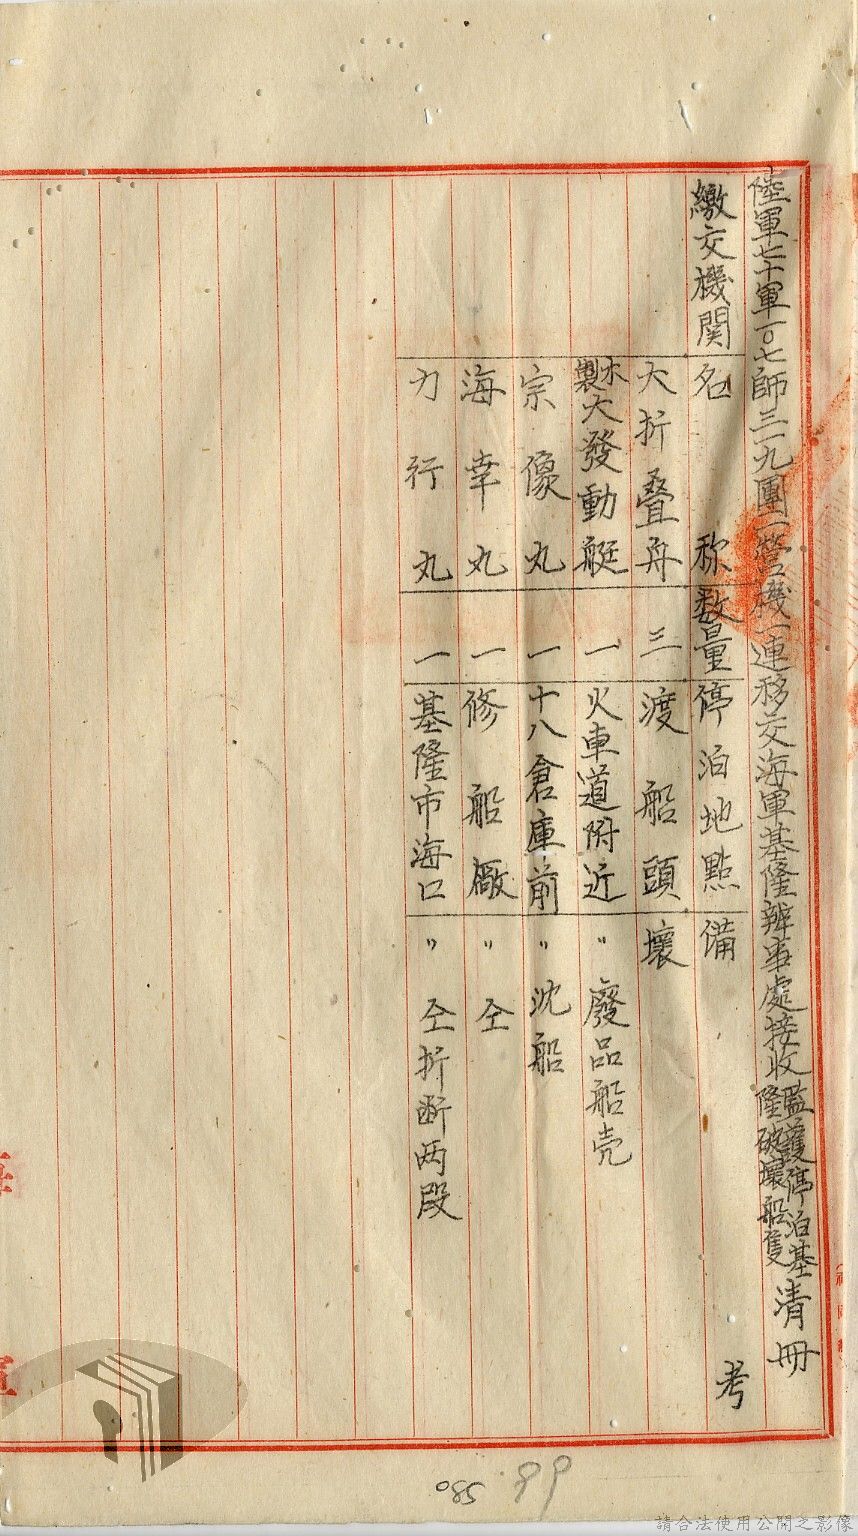 陸軍七十軍一〇七師三一九團一營機一連移交海軍基隆辦事處接收監護停泊基隆破壞船隻清冊
繳交機関 名称 数量 停泊地點 備考
大折疊舟 三 渡船頭 壞
木製大發動艇 一 火車道附近 〃 廢品船壳
宗像丸 一 十八倉庫前 〃 沈船
海幸丸 一 修船廠 〃 仝
力行丸 一 基隆市海口 〃 仝折断两段
085
99
請合法使用公開之影像